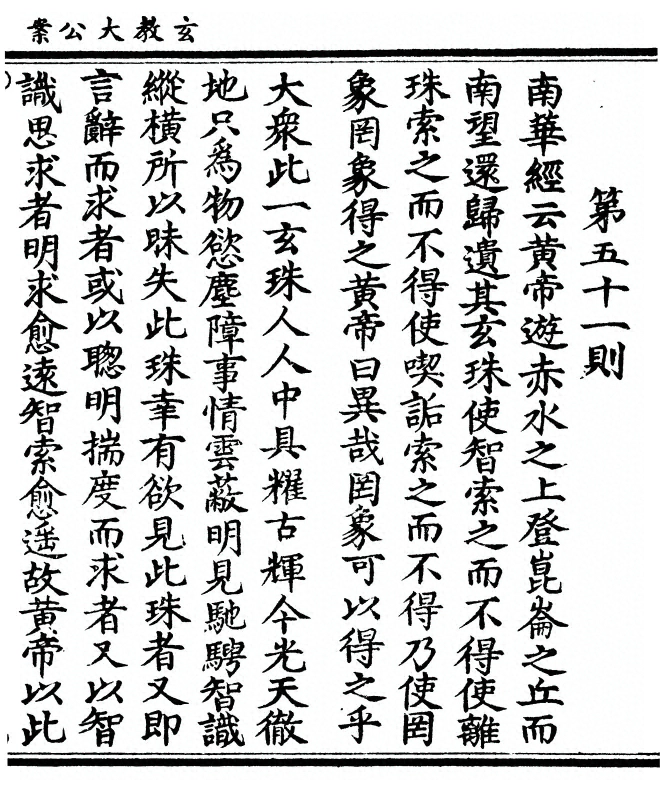 玄教大公案
第五十一則
南華經云黃帝遊赤水之上登崑崙之丘而
南望還歸遺其玄珠使智索之而不得使離
珠索之而不得使喫詬索之而不得乃使罔
象罔象得之黃帝曰異哉罔象可以得之乎
大衆此一玄珠人人中具耀古輝今光天徹
地只爲物慾塵障事情雲蔽明見馳騁智識
縱横所以昧失此珠幸有欲見此珠者又即
言辭而求者或以聰明揣度而求者又以智
識思求者明求愈遠智索愈遥故黃帝以此